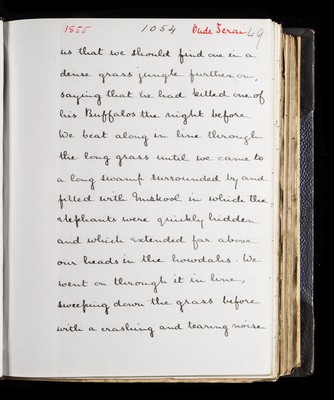 1855 1054 Oude Terai 49
us that we should find one in a
dense grass jungle further on,
saying that he had killed one of
his Buffalos the night before
We beat along in line through
the long grass until we came to
a long swamp surrounded by and
filled with Nuskool in which the
elephants were quickly hidden
and which extended far above
our heads in the howdahs. We
went on through it in line,
sweeping down the grass before
with a crashing and tearing noise